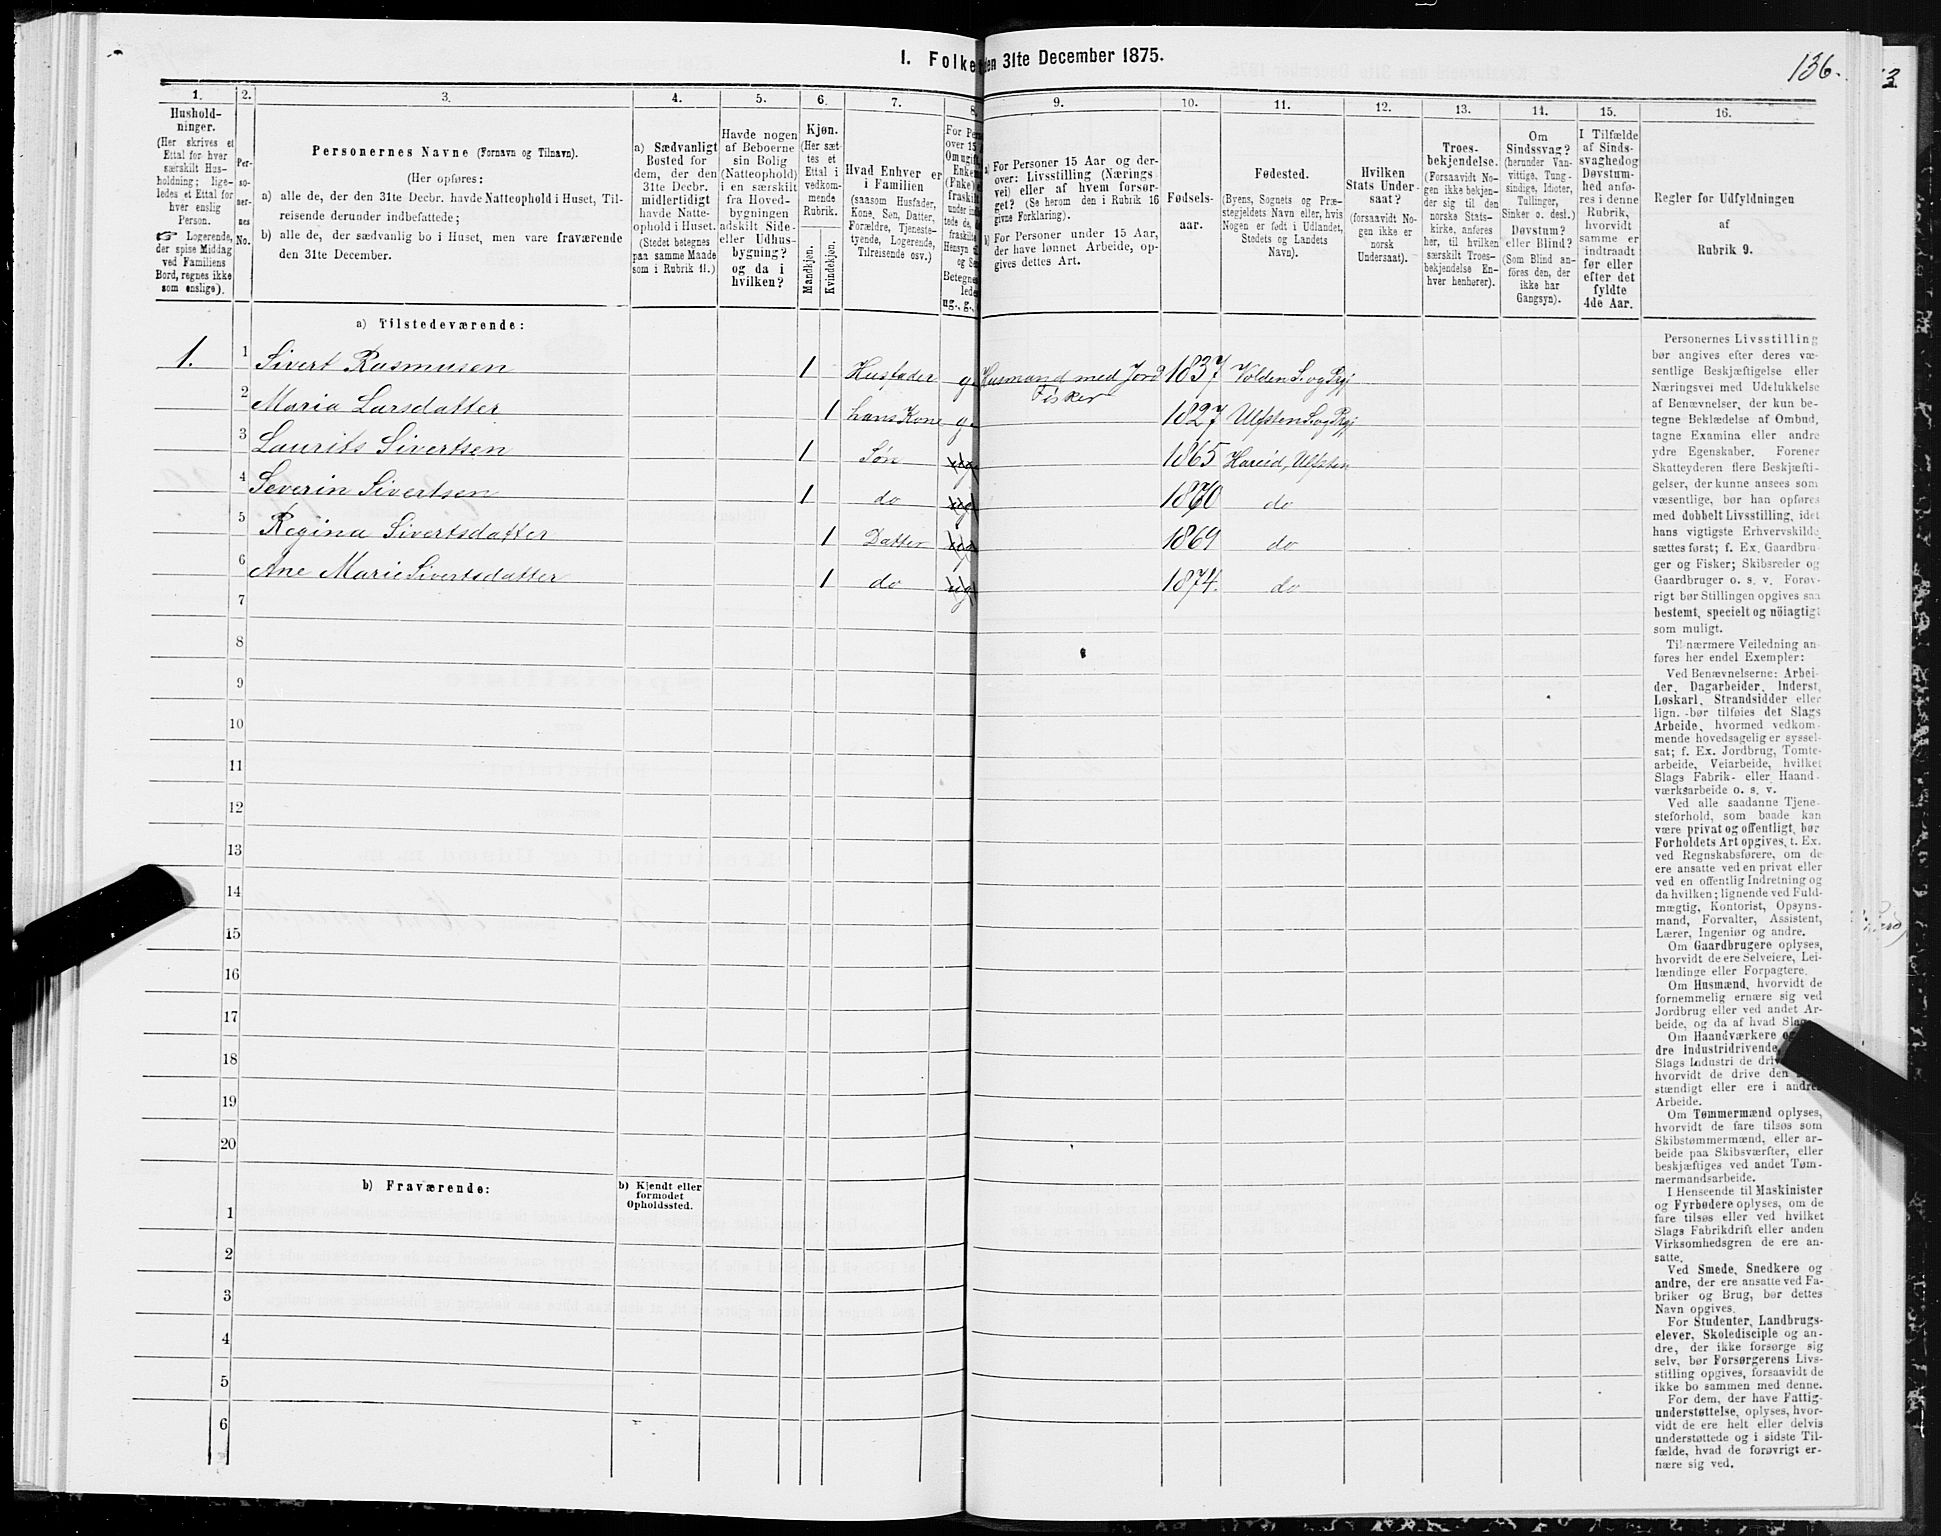 I. Folke en 31te December 1875.
136.
1. 2. 3. 4. 5. 6. 7. 8. 9. 10. 11. 12. 13. 14. 15. 16.
Hushold-
ninger.
(Her skrives et
Ettal for hver
særskilt Hus-
holdning; lige-
ledes et Ettal for
hver enslig
Person.
☞ Logerende,
der spise Middag
ved Familiens
Bord, regnes ikke
som enslige).
Per-
so-
ner-
nes
No.
Personernes Navne (Fornavn og Tilnavn).
(Her opføres:
a) alle de, der den 31te Decbr. havde Natteophold i Huset, Til-
reisende derunder indbefattede;
b) alle de, der sædvanlig bo i Huset, men vare fraværende
den 31te December.
a) Sædvanligt
Bosted for
dem, der den
31te Decbr.
midlertidigt
havde Natte-
ophold i Huset.
(Stedet betegnes
paa samme Maade
som i Rubrik 11.)
Havde nogen
af Beboerne
sin Bolig
(Natteophold)
i en særskilt
fra Hoved-
bygningen
adskilt Side-
eller Udhus-
bygning?
og da i
hvilken?
Kjøn.
(Her sæt-
tes et
Ettal i
vedkom-
mende
Rubrik.
Mandkjøn.
Kvindekjøn.
Hvad Enhver er
i Familien
(saasom Husfader,
Kone, Søn, Datter,
Forældre, Tjeneste-
tyende, Logerende,
Tilreisende osv.)
For Pers
over 15
Om ugift,
Enken
(Fnke)
fraskilt
Hensyn
og
Betegnes
ug., g.,
a) For Personer 15 Aar og der-
over: Livsstilling (Nærings-
vei) eller af hvem forsør-
get? (Se herom den i Rubrik 16
givne Forklaring).
b) For Personer under 15 Aar,
der have lønnet Arbeide, op-
gives dettes Art.
Fødsels-
aar.
Fødested.
(Byens, Sognets og Præ-
stegjeldets Navn eller, hvis
Nogen er født i Udlandet,
Stedets og Landets
Navn).
Hvilken
Stats Under-
saat?
(forsaavidt No-
gen ikke er
norsk
Undersaat).
Troes-
bekjendelse.
(Forsaavidt No-
gen ikke bekjen-
der sig til den
norske Stats-
kirke, anføres
her, til hvilken
særskilt Troes-
bekjendelse En-
hver henhører).
Om
Sindssvag?
(herunder Van-
vittige, Tung-
sindige, Idioter,
Tullinger,
Sinker o. desl.)
Døvstum?
eller Blind?
(Som Blind an-
føres den, der
ikke har
Gangsyn).
I Tilfælde
af Sinds-
svaghed og
Døvstum-
hed anfø-
res i denne
Rubrik,
hvorvidt
samme er
indtraadt
før eller
efter det
fyldte
4de Aar.
Regler for Udfyldningen
af
Rubrik 9.
a) Tilstedeværende:
1. 1 Sivert Rasmusen 1 Husfader g. Husmand med Jord Fisker 1837 Volden S. og Prgj
2 Maria Larsdatter 1 hans Kone g. 1827 Ulfsten S. og Prgj
3 Laurits Sivertsen 1 Søn ug 1865 Hareid, Ulfsten
4 Severin Sivertsen 1 do ug 1870 do
5 Regina Sivertsdatter 1 Datter ug 1869 do
6 Ane Marie Sivertsdatter 1 do ug 1874. do
7
8
9
10
11
12
13
14
15
16
17
18
19
20
b) Fraværende:
b) Kjendt eller
formodet
Opholdssted.
1
2
3
4
5
6
Personernes Livsstilling
bør angives efter deres væ-
sentlige Beskjæftigelse eller
Næringsvei med Udelukkelse
af Benævnelser, der kun be-
tegne Beklædelse af Ombud,
tagne Examina eller andre
ydre Egenskaber. Forener
Skatteyderen flere Beskjæfti-
gelser, der kunne ansees som
væsentlige, bør han opføres
med dobbelt Livsstilling, idet
hans vigtigste Erhvervskilde
sættes først; f. Ex. Gaardbru-
ger og Fisker; Skibsreder og
Gaardbruger o. s. v. Forøv-
rigt bør Stillingen opgives saa
bestemt, specielt og nöiagtigt
som muligt.
Til nærmere Veiledning an-
føres her endel Exempler:
Ved Benævnelserne: Arbei-
der, Dagarbeider, Inderst,
Løskarl, Strandsidder eller
lign. bør tilføies det Slags
Arbeide, hvormed vedkom-
mende hovedsagelig er syssel-
sat; f. Ex. Jordbrug, Tomte-
arbeide, Veiarbeide, hvilket
Slags Fabrik- eller Haand-
værksarbeide o. s. v.
Ved alle saadanne Tjene-
steforhold, som baade kan
være privat og offentligt, bør
Forholdets Art opgives, t. Ex.
ved Regnskabsførere, om de
ere ansatte ved en privat eller
ved en offentlig Indretning og
da hvilken; lignende ved Fuld-
mægtig, Kontorist, Opsyns-
mand, Forvalter, Assistent,
Lærer, Ingeniør og andre.
Om Gaardbrugere oplyses,
hvorvidt de ere Selveiere, Lei-
lændinge eller Forpagtere.
Om Husmænd, hvorvidt de
fornemmelig ernære sig ved
Jordbrug eller ved andet Ar-
beide, og da af hvad Slags
Om Haandværkere og
dre Industridrivende,
Slags Industri de driv
hvorvidt de drive den
stændigt eller ere i andres
Arbeide.
Om Tømmermænd oplyses,
hvorvidt de fare tilsøs som
Skibstømmermænd, eller ar-
beide paa Skibsværfter, eller
beskjæftiges ved andet Tøm-
mermandsarbeide.
I Henseende til Maskinister
og Fyrbødere oplyses, om de
fare tilsøs eller ved hvilket
Slags Fabrikdrift eller anden
Virksomhedsgren de ere an-
satte.
Ved Smede, Snedkere og
andre, der ere ansatte ved Fa-
briker og Brug, bør dettes
Navn opgives.
For Studenter, Landbrugs-
elever, Skoledisciple og an-
dre, der ikke forsørge sig
selv, bør Forsørgerens Livs-
stilling opgives, forsaavidt de
ikke bo sammen med denne.
For dem, der have Fattig-
understøttelse, oplyses, hvor-
vidt de ere helt eller delvis
understøttede og i sidste Til-
fælde, hvad de forøvrigt er-
nære sig ved.